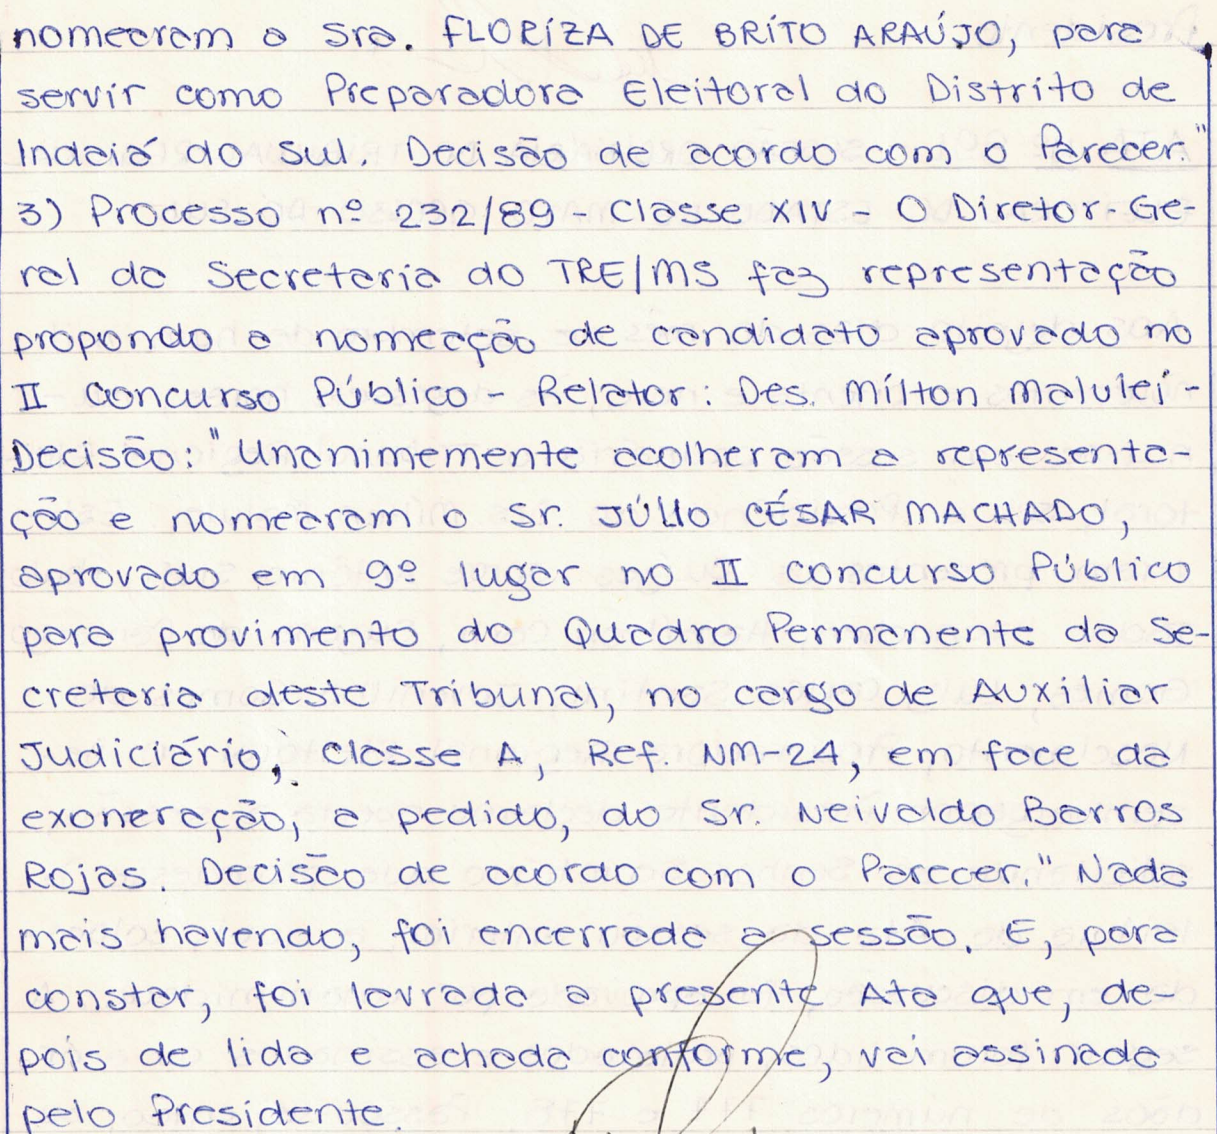 nomearam a Sra. FLORÍZA DE BRÍTO ARAÚJO, para
servir como Preparadora Eleitoral do Distrito de
Indaiá do Sul. Decisão de acordo com o Parecer."
3) Processo nº 232/89 - Classe XIV - O Diretor Ge-
ral da Secretaria do TRE/MS faz representação
propondo a nomeação de candidato aprovado no
II Concurso Público - Relator: Des. Mílton Malulei -
Decisão: "Unanimemente acolheram a representa-
ção e nomearam o Sr. JÚLIO CÉSAR MACHADO,
aprovado em 9º lugar no II Concurso Público
para provimento do Quadro Permanente da Se-
cretaria deste Tribunal, no cargo de Auxiliar
Judiciário, Classe A, Ref. NM-24, em face da
exoneração, a pedido, do Sr. Neivaldo Barros
Rojas. Decisão de acordo com o Parecer." Nada
mais havendo, foi encerrada a sessão. E, para
constar, foi lavrada a presente Ata que, de-
pois de lida e achada conforme, vai assinada
pelo Presidente.